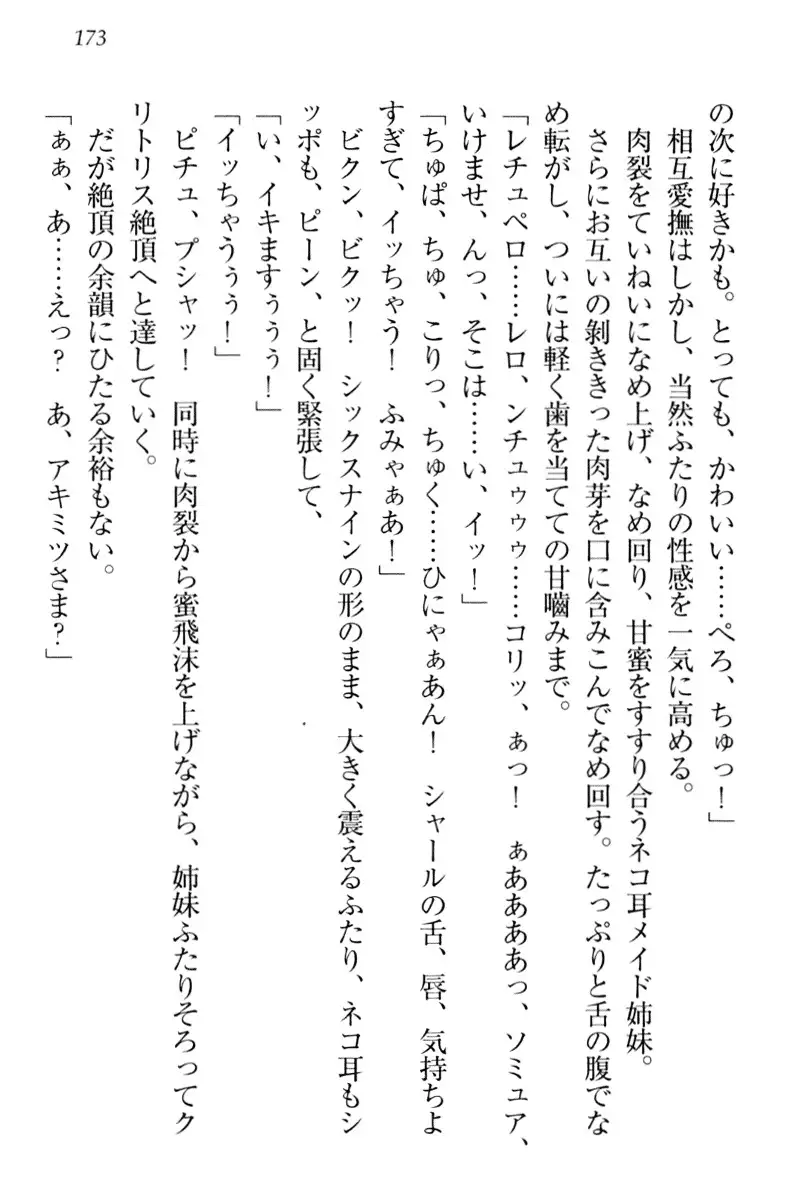 173
の次に好きかも。とっても、かわいい……ぺろ、ちゅっ！」
相互愛撫はしかし、当然ふたりの性感を一気に高める。
肉裂をていねいになめ上げ、なめ回り、甘蜜をすすり合うネコ耳メイド姉妹。
さらにお互いの剝ききった肉芽を口に含みこんでなめ回す。たっぷりと舌の腹でな
め転がし、ついには軽く歯を当てての甘嚙みまで。
「レチュペロ……レロ、ンチュゥゥゥ……コリッ、ぁっ！　ぁああああっ、ソミュア、
いけませ、んっ、そこは……い、イッ！」
「ちゅぱ、ちゅ、こりっ、ちゅく……ひにゃぁあん！　シャールの舌、唇、気持ちよ
すぎて、イッちゃう！　ふみゃぁあ！」
ビクン、ビクッ！　シックスナインの形のまま、大きく震えるふたり、ネコ耳もシ
ッポも、ピーン、と固く緊張して、
「い、イキますぅぅぅ！」
「イッちゃうぅぅ！」
ピチュ、プシャッ！　同時に肉裂から蜜飛沫を上げながら、姉妹ふたりそろってク
リトリス絶頂へと達していく。
だが絶頂の余韻にひたる余裕もない。
「ぁぁ、あ……えっ？　あ、アキミツさま？」